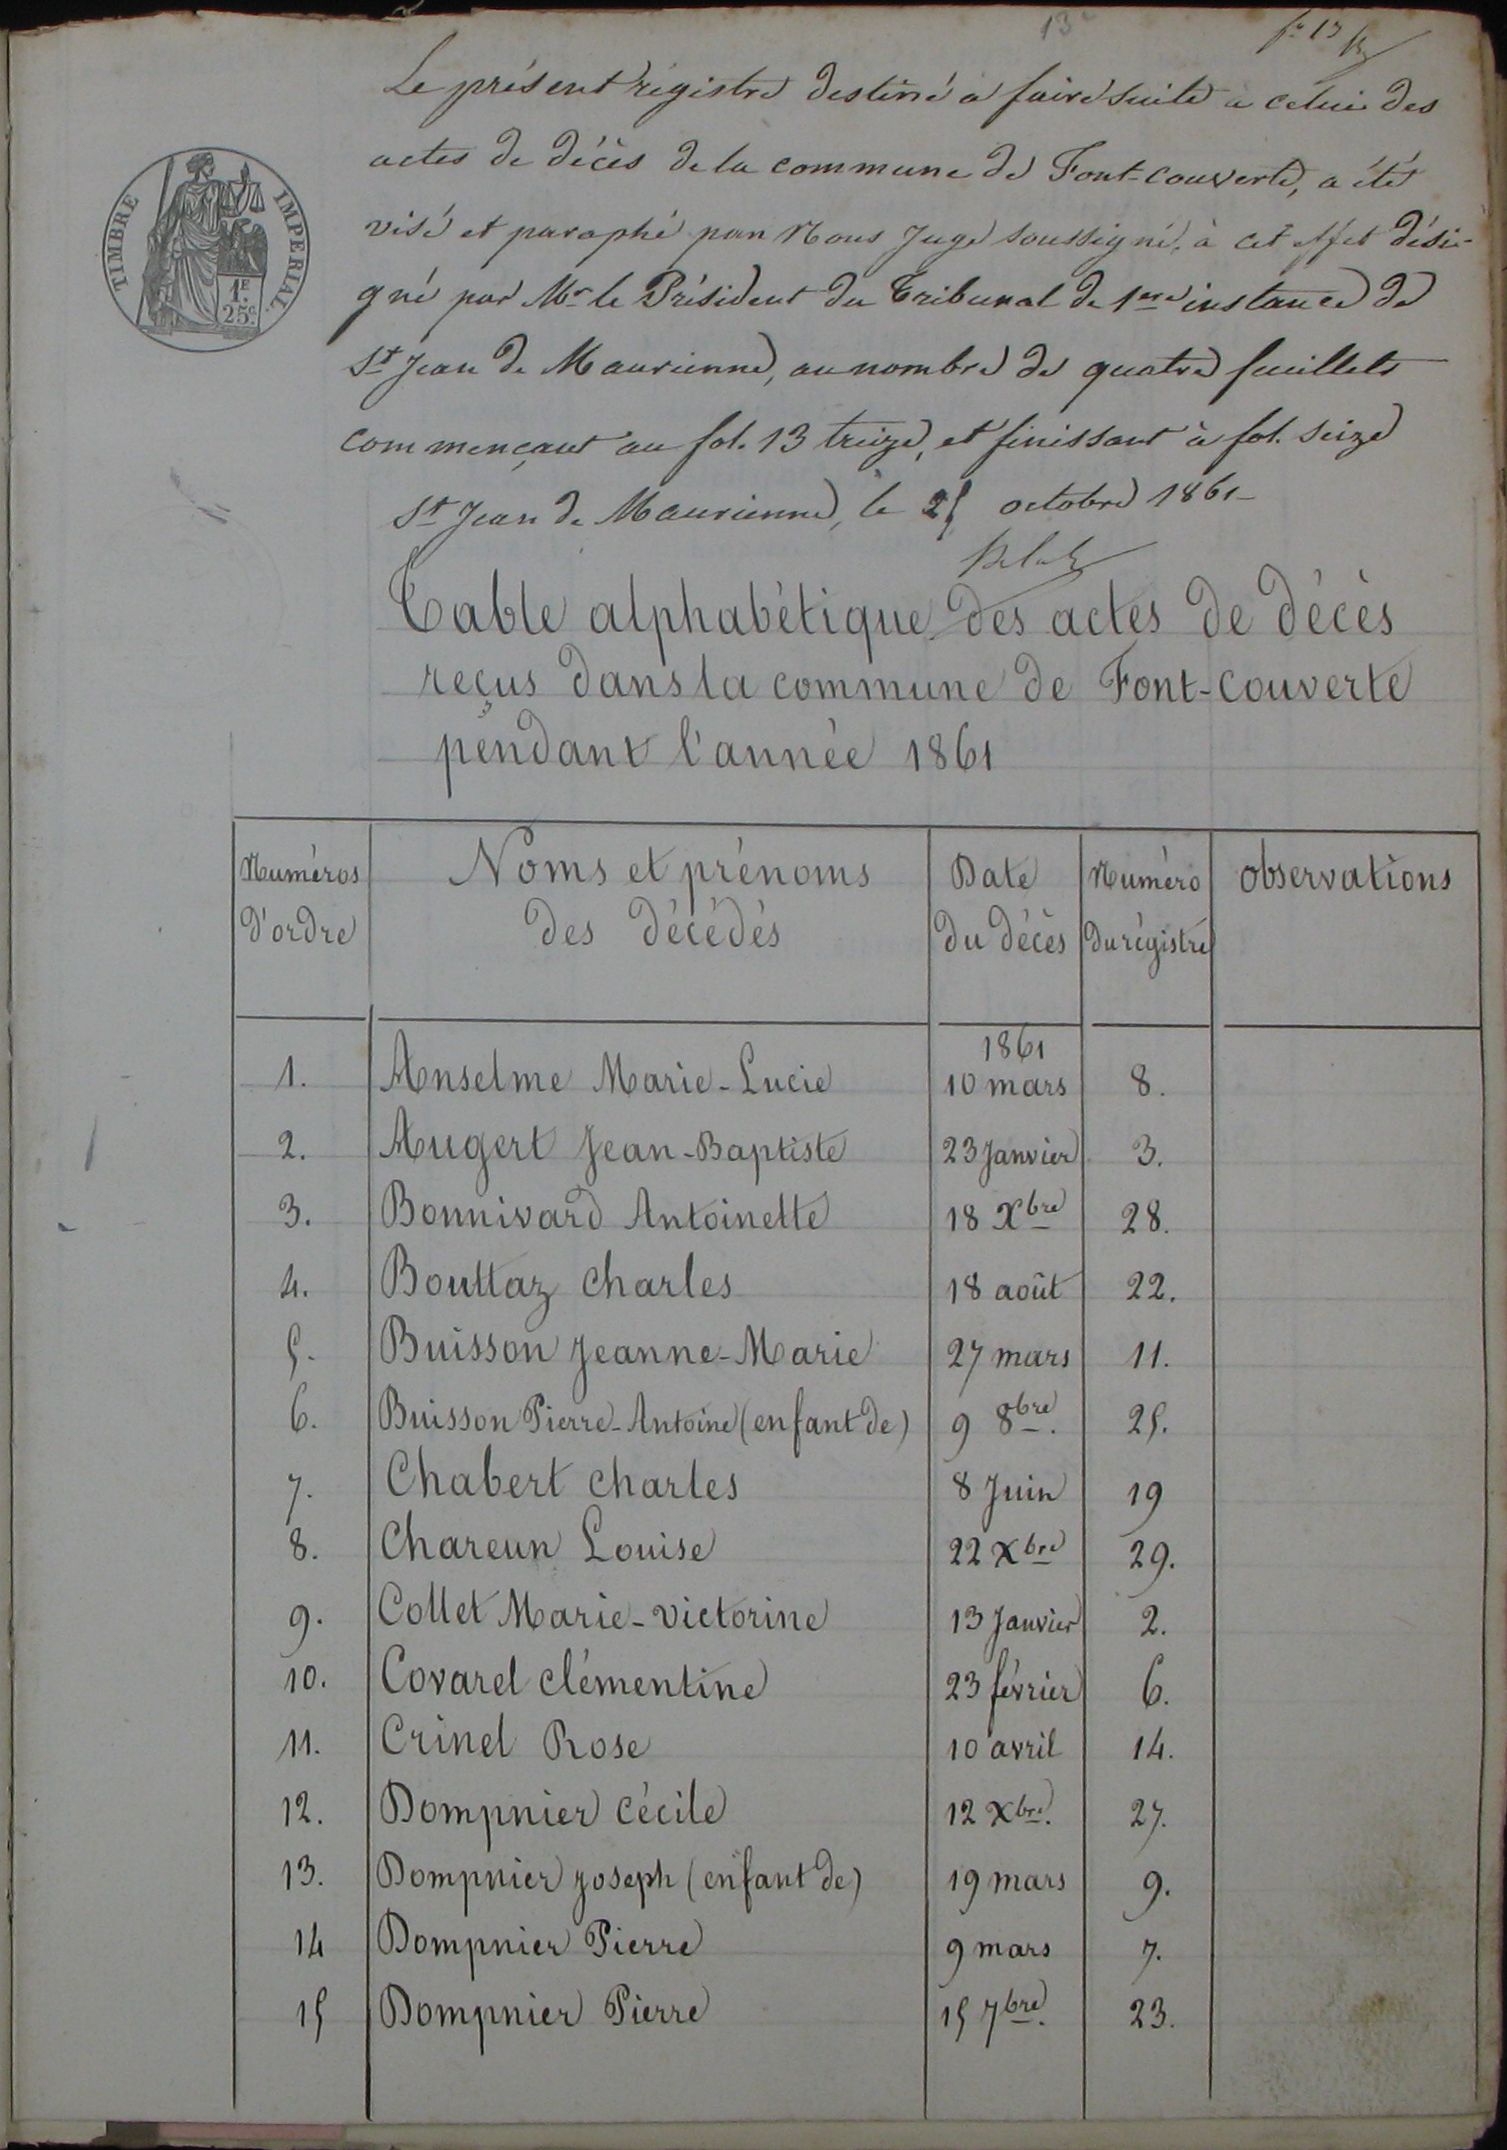 13
fo 13
Le présent régistre destiné à faire suite à celui des
actes de décès de la commune de Font-couverte, a été
visé et paraphé par Nous Juge soussigné, à cet effet dési-
gné par Mr le Président du Tribunal de 1ere instance de
St Jean de Maurienne, au nombre de quatre feuillets
commençant au fol. 13 treize, et finissant à fol. seize
St Jean de Maurienne, le 25 octobre 1861
TIMBRE IMPERIAL
1F
25c
Table alphabétique des actes de décès
reçus dans la commune de Font-couverte
pendant l'année 1861
Numéros d'ordre | Noms et prénoms des décédés | Date du décès | Numéro du régistre | observations
1861
1. Anselme Marie-Lucie 10 mars 8.
2. Augert Jean-Baptiste 23 Janvier 3.
3. Bonnivard Antoinette 18 Xbre 28.
4. Bouttaz Charles 18 août 22.
5. Buisson Jeanne-Marie 27 mars 11.
6. Buisson Pierre-Antoine (enfant de) 9 8bre. 25.
7. Chabert Charles 8 Juin 19
8. Chareun Louise 22 Xbre 29.
9. Collet Marie-Victorine 13 Janvier 2.
10. Covarel Clémentine 23 février 6.
11. Crinel Rose 10 avril 14.
12. Dompnier Cécile 12 Xbre. 27.
13. Dompnier Joseph (enfant de) 19 mars 9.
14 Dompnier Pierre 9 mars 7.
15 Dompnier Pierre 15 7bre. 23.